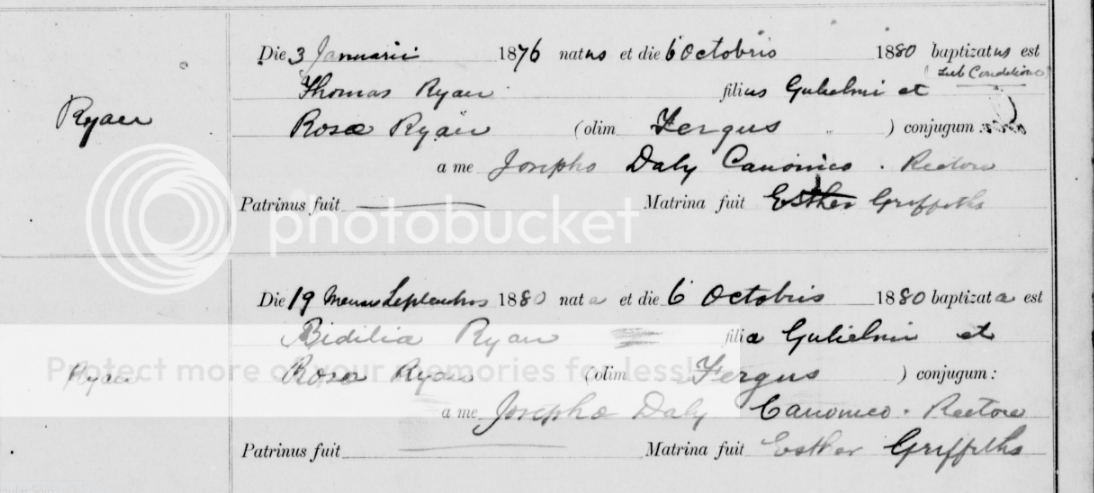 Die 3 Januarii 1876 natus et die 6 Octobris 1880 baptizatus est
(sub Conditione)
Thomas Ryan filius Gulielmi et
Ryan
Rosæ Ryan (olim Fergus ) conjugum:
a me Josepho Daly Canonico. Rectore
Patrinus fuit Matrina fuit Esther Griffiths
photobucket
Die 19 Septembris 1880 nata et die 6 Octobris 1880 baptizata est
Bidilia Ryan filia Gulielmi et
Protect more of your memories for less!
Ryan
Rosæ Ryan (olim Fergus ) conjugum:
a me Josepho Daly Canonico. Rectore
Patrinus fuit Matrina fuit Esther Griffiths